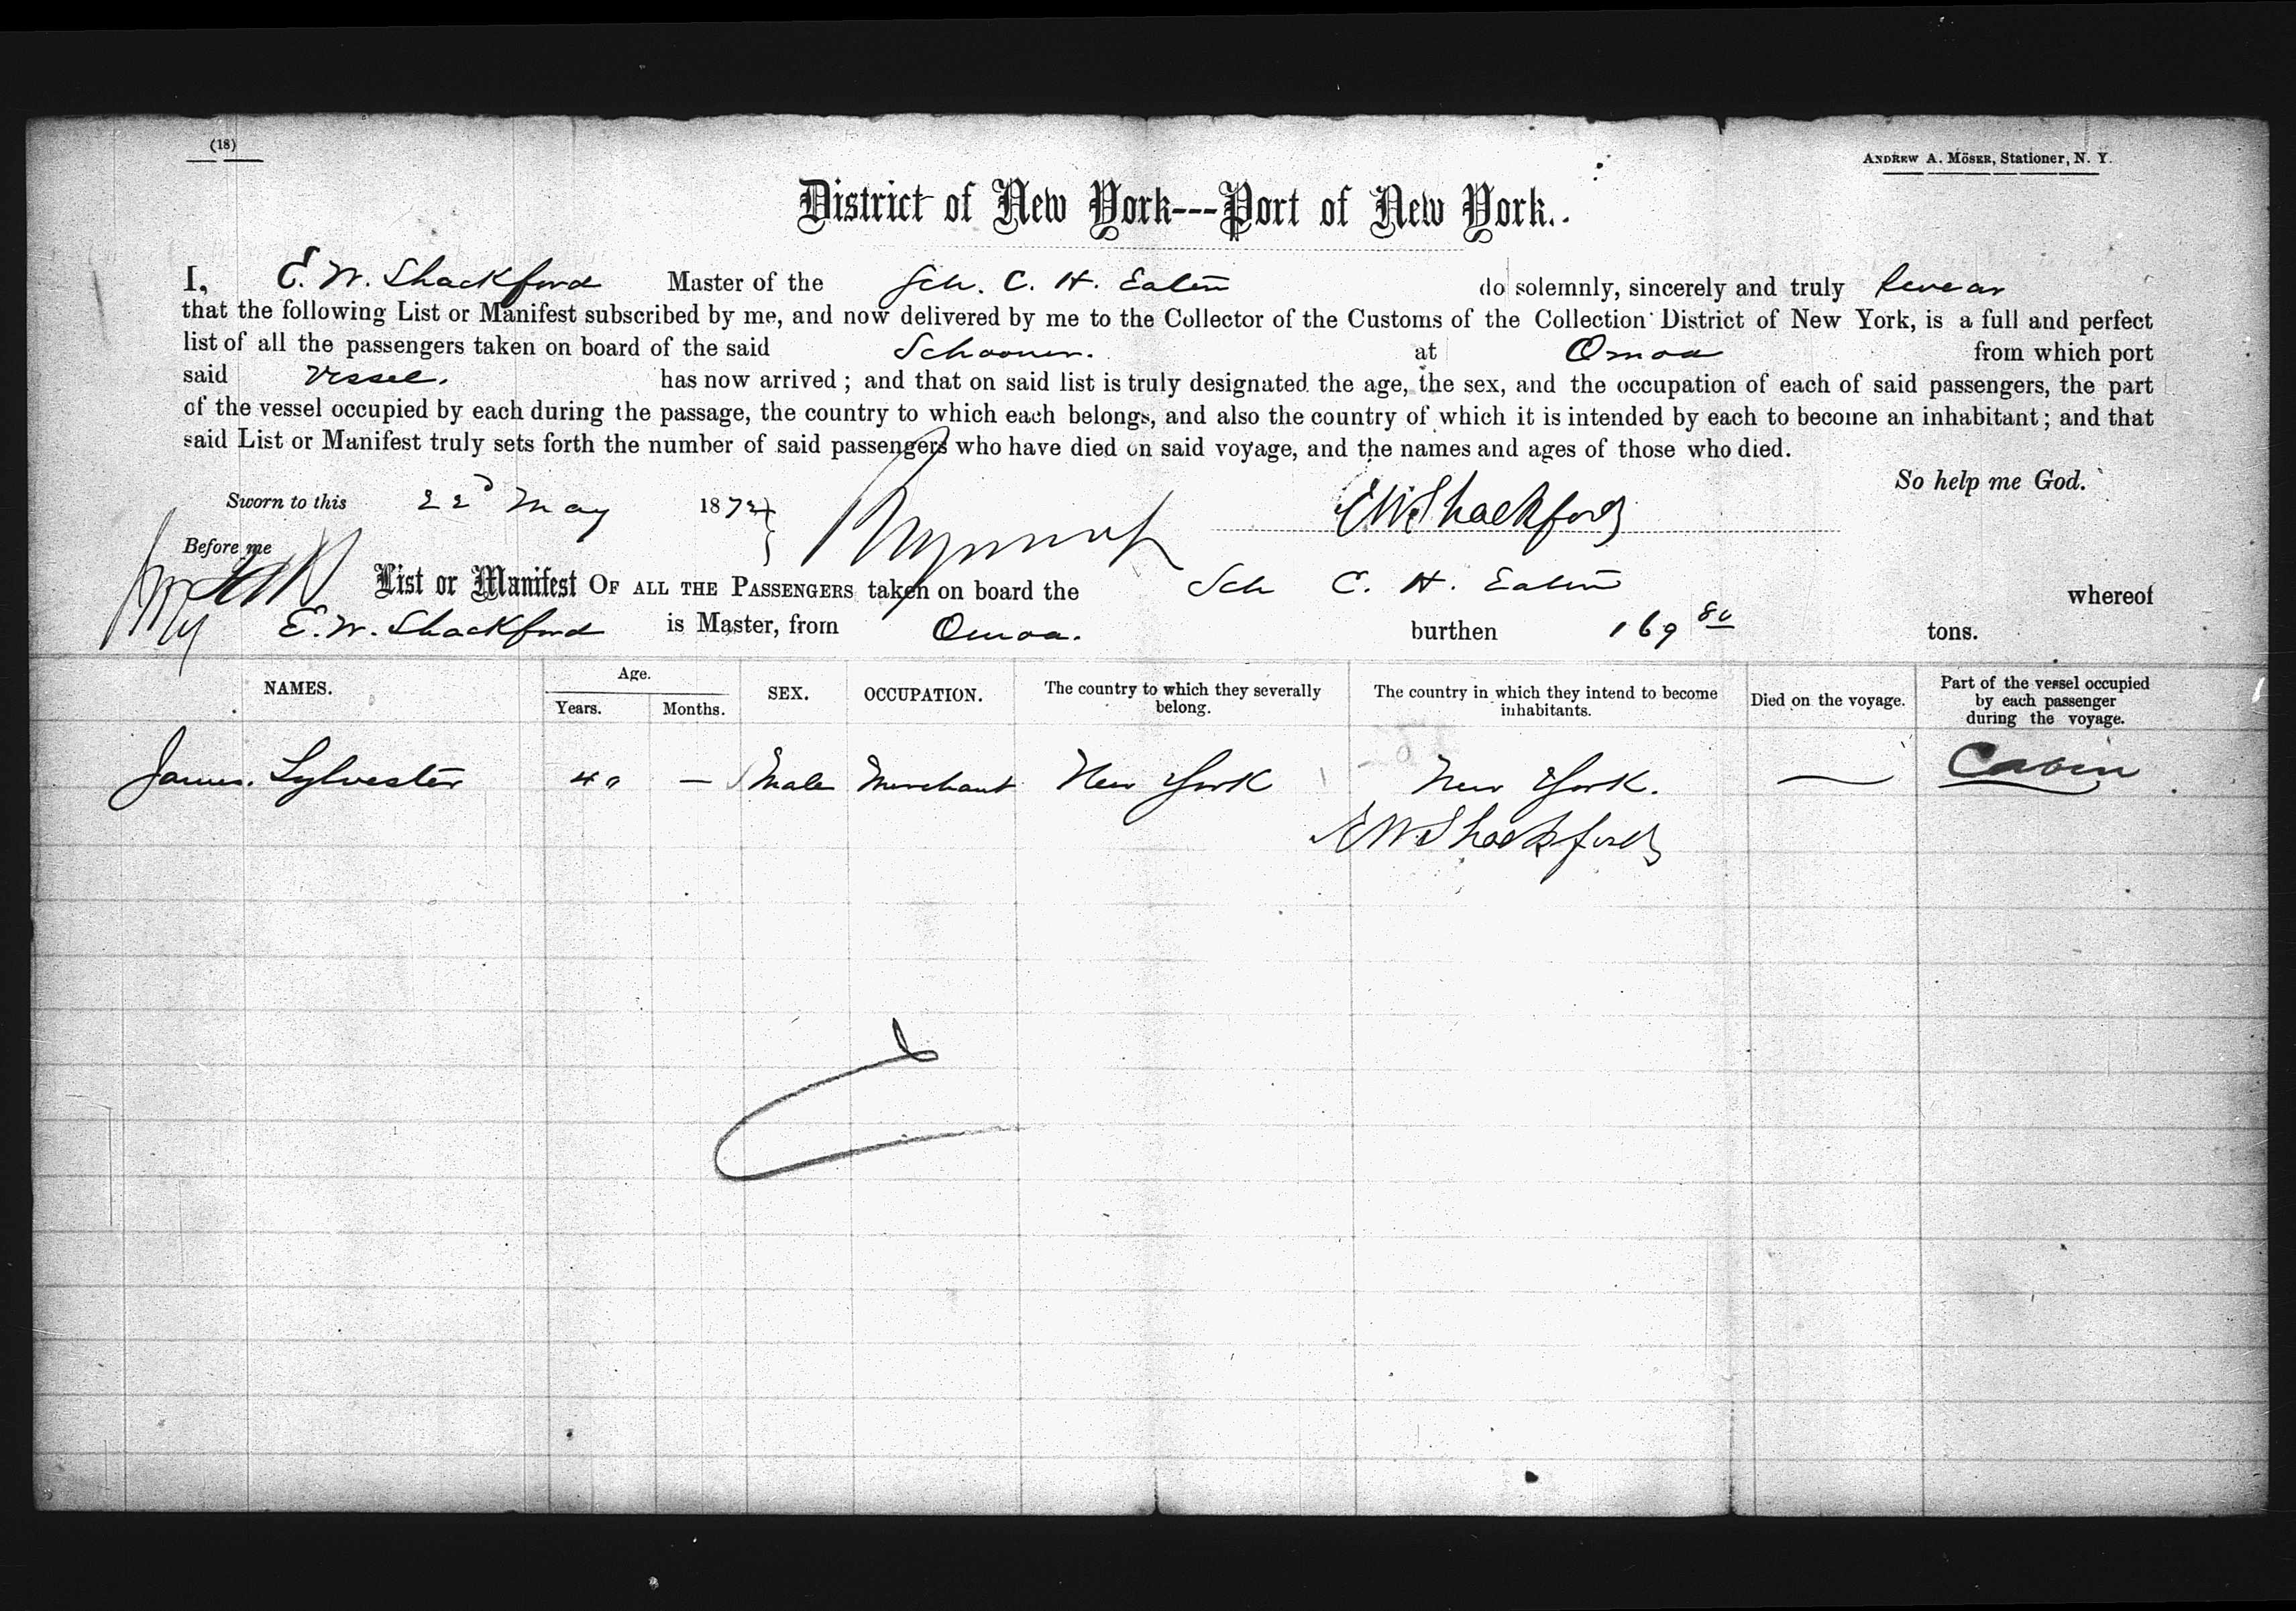 (18)
ANDREW A. MÖSER, Stationer, N. Y.
District of New York---Port of New York.
I, E. W. Shackford Master of the Sch. C. H. Eaton do solemnly, sincerely and truly swear
that the following List or Manifest subscribed by me, and now delivered by me to the Collector of the Customs of the Collection District of New York, is a full and perfect
list of all the passengers taken on board of the said Schooner. at Omoa from which port
said Vessel. has now arrived; and that on said list is truly designated the age, the sex, and the occupation of each of said passengers, the part
of the vessel occupied by each during the passage, the country to which each belongs, and also the country of which it is intended by each to become an inhabitant; and that
said List or Manifest truly sets forth the number of said passengers who have died on said voyage, and the names and ages of those who died.
So help me God.
Sworn to this 22d May 187
EW Shackford
Before me
List or Manifest OF ALL THE PASSENGERS taken on board the Sch C. H. Eaton whereof
E. W. Shackford is Master, from Omoa. burthen 169 80 tons.
NAMES. Age. Years. Months. SEX. OCCUPATION. The country to which they severally belong. The country in which they intend to become inhabitants. Died on the voyage. Part of the vessel occupied by each passenger during the voyage.
James. Sylvester 40 — Male Merchant New York New York. — Cabin
EW Shackford